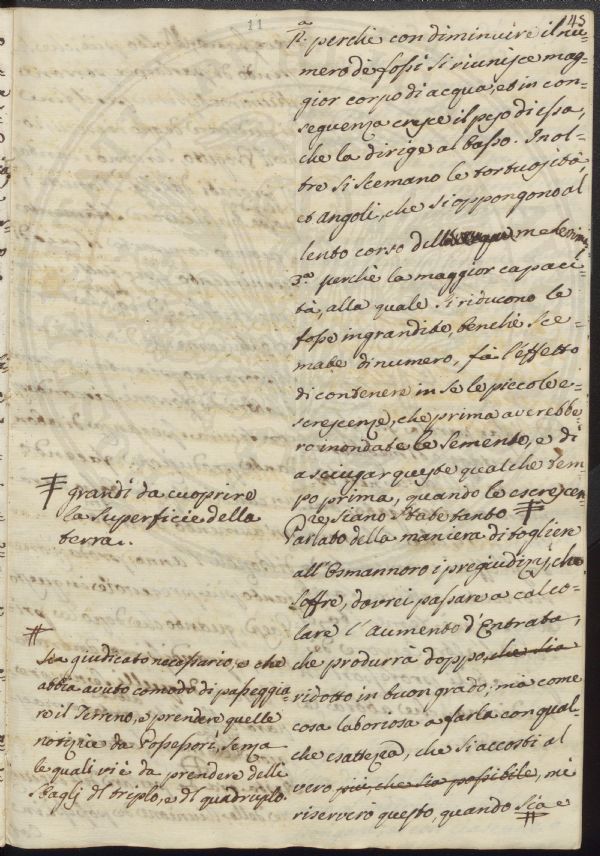 11
45
P.ª perchè con diminuire il nu-
mero de fossi si riunisce mag-
gior corpo di acqua, et in con-
seguenza cresce il peso di essa,
che la dirige al basso. Inol-
tre si scemano le tortuosità,
et angoli, che si oppongono al
lento corso dell medesimi
3.ª perchè la maggior capaci-
tà, alla quale si riducono le
fosse ingrandite, benchè sce-
mate di numero, fà l'effetto
di contenere in se le piccole e-
screscenze, che prima averebbe
ro inondate le semente, e di
asciugar queste qualche tem
po prima, quando le escrescen
ze siano state tanto #
Parlato della maniera di togliere
all'Osmannoro i pregiudizj, che
soffre, dovrei passare a calco-
lare l'aumento d'Entrata,
che produrrà doppo, che sia
ridotto in buon grado, mà come
cosa laboriosa a farla con qual-
che esattezza, che si accosti al
vero più, che sia possibile, mi
riserverò questo, quando sia e
#
# grandi da cuoprire
la superficie della
terra.
#
sia giudicato necessario, e che
abbia avuto comodo di passeggia-
re il Terreno, e prendere quelle
notizie da Possessori, senza
le quali vi è da prendere delli
sbagli del triplo, e del quadruplo.